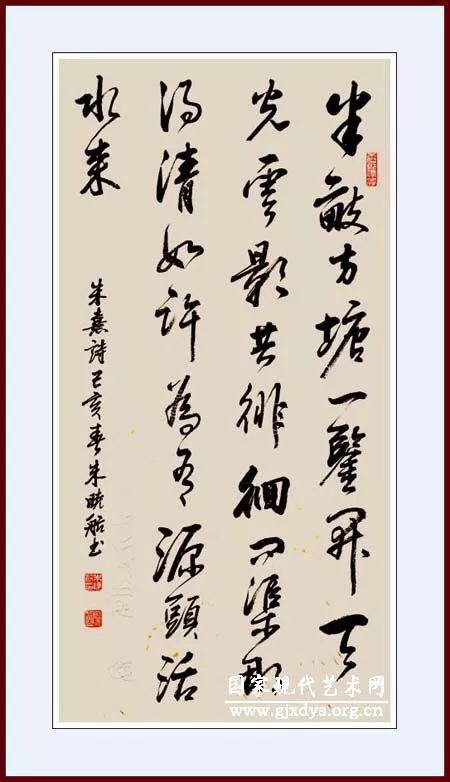 半畝方塘一鑒開天
光雲影共徘徊問渠那
得清如許為有源頭活
水來
朱熹詩己亥春朱曉船书
国家现代艺术网
www.gjxdys.org.cn